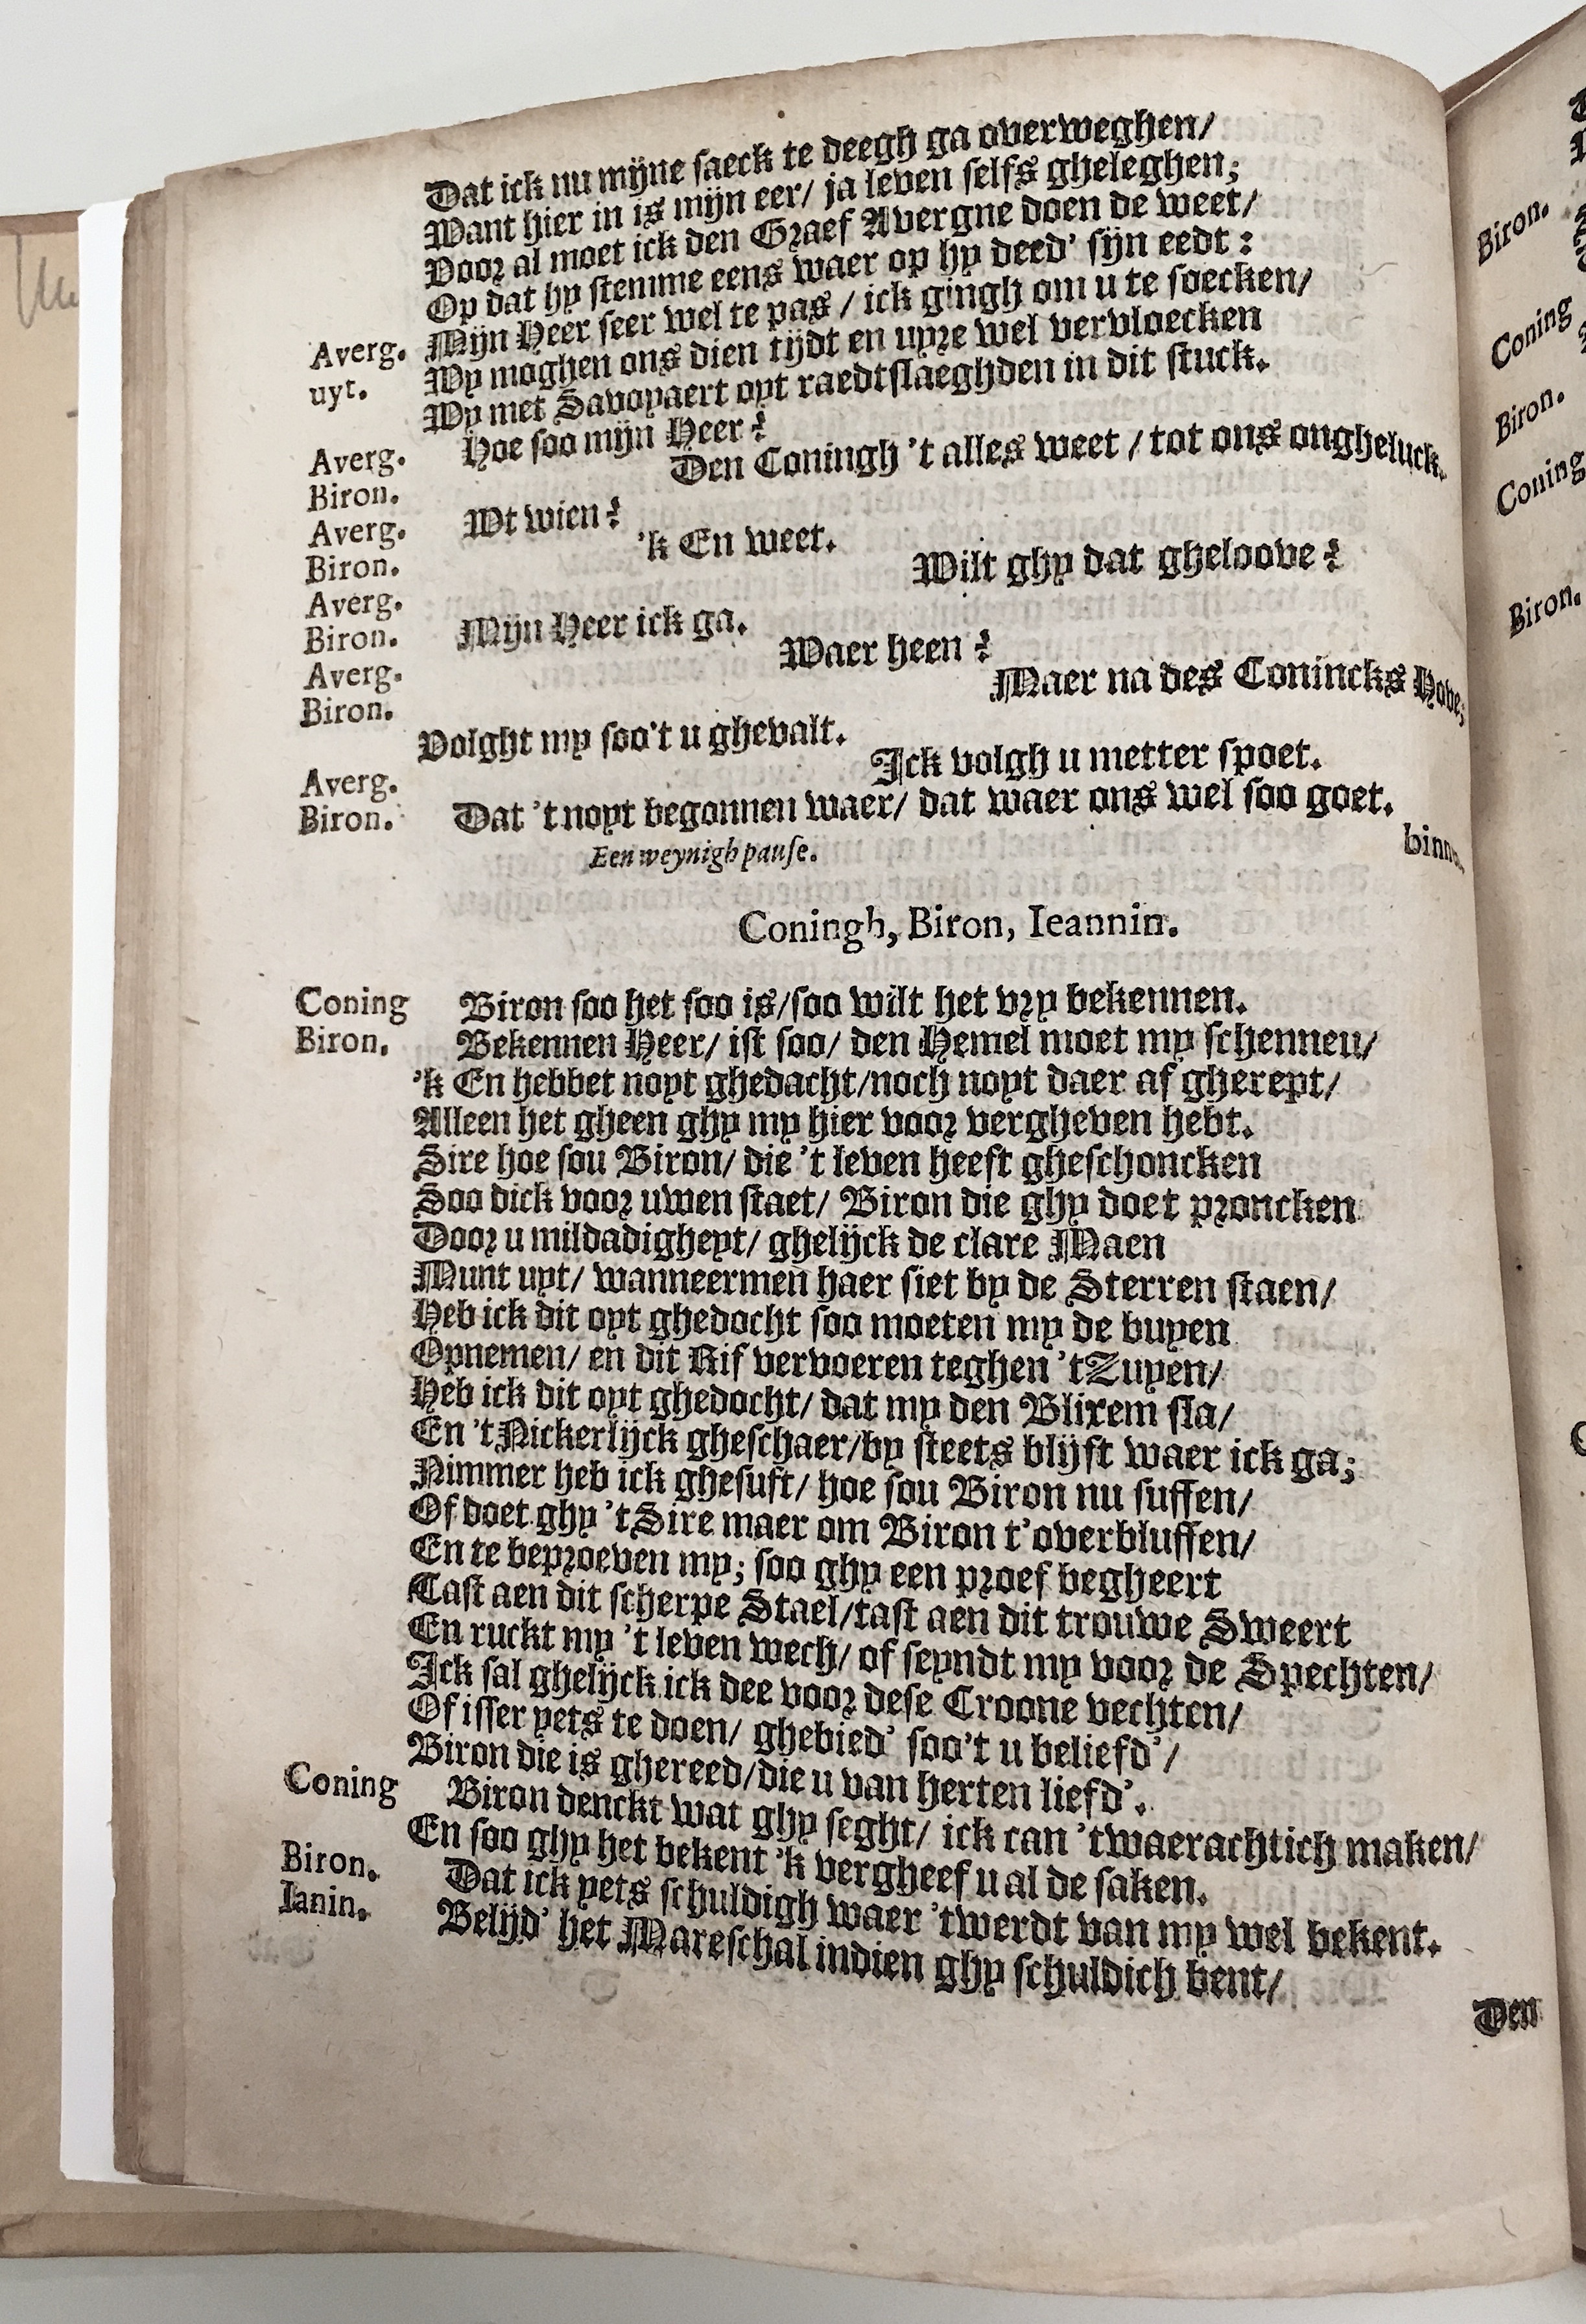 Dat ick nu mijne saeck te deegh ga overweghen/
Want hier in is mijn eer/ ja leven selfs gheleghen;
Voor al moet ick den Graef Avergne doen de weet/
Op dat hy stemme eens waer op hy deed' sijn eedt:
Averg. Mijn Heer seer wel te pas / ick gingh om u te soecken/
uyt. Wy moghen ons dien tijdt en uyre wel vervloecken
Wy met Savoyaert oyt raedtslaeghden in dit stuck.
Averg. Hoe soo mijn Heer?
Biron. Den Coningh 't alles weet / tot ons ongheluck.
Averg. Wt wien?
Biron. 'k En weet.
Averg. Wilt ghy dat gheloove?
Biron. Mijn Heer ick ga.
Averg. Waer heen?
Biron. Maer na des Conincks Hove;
Volght my soo't u ghevalt.
Averg. Ick volgh u metter spoet.
Biron. Dat 't noyt begonnen waer/ dat waer ons wel soo goet.
Een weynigh pause.
Coningh, Biron, Ieannin.
Coning Biron soo het soo is/soo wilt het vry bekennen.
Biron. Bekennen Heer/ ist soo/ den Hemel moet my schennen/
'k En hebbet noyt ghedacht/noch noyt daer af gherept/
Alleen het gheen ghy my hier voor vergheven hebt.
Sire hoe sou Biron/ die 't leven heeft gheschoncken
Soo dick voor uwen staet/ Biron die ghy doet proncken
Door u mildadigheyt/ ghelijck de clare Maen
Munt uyt/ wanneermen haer siet by de Sterren staen/
Heb ick dit oyt ghedocht soo moeten my de buyen
Opnemen/ en dit Rif vervoeren teghen 't Zuyen/
Heb ick dit oyt ghedocht/ dat my den Blixem sla/
En 't Nickerlijck gheschaer/by steets blijft waer ick ga;
Nimmer heb ick ghesuft/ hoe sou Biron nu suffen/
Of doet ghy 't Sire maer om Biron t'overbluffen/
En te beproeven my; soo ghy een proef begheert
Tast aen dit scherpe Stael/tast aen dit trouwe Sweert
En ruckt my 't leven wech/ of seyndt my voor de Spechten/
Ick sal ghelijck ick dee voor dese Croone vechten/
Of isser yets te doen/ ghebied' soo't u beliefd'/
Biron die is ghereed/die u van herten liefd'.
Coning Biron denckt wat ghy seght/ ick can 't waerachtich maken/
En soo ghy het bekent 'k vergheef u al de saken.
Biron. Dat ick yets schuldigh waer 't werdt van my wel bekent.
Ianin. Belijd' het Mareschal indien ghy schuldich bent/
Den
Biron.
Coning
Biron.
Coning
Biron.